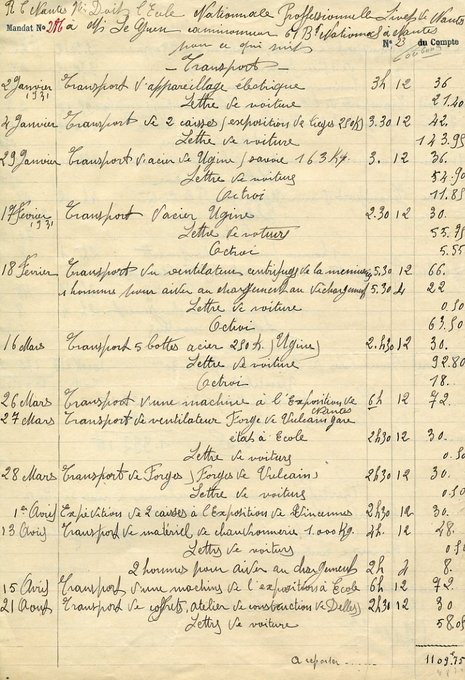 Doit l'Ecole Nationale Professionnelle Livet de Nantes
Mandat No 286 à Mr Le Guen camionneur Bd Nationaux à Nantes No 23 du Compte
pour ce qui suit
Transport
2 Janvier 1931 Transport d'appareillage électrique 3h 12 36
Lettre de voiture 21.40
4 Janvier Transport de 2 caisses (exposition de Liège 250K) 3.30 12 42.
Lettre de voiture 143.95
29 Janvier Transport d'acier de Ugine Savoie 163 Kg. 3. 12 36.
Lettre de voiture 54.90
Octroi 11.85
17 Février 1931 Transport d'acier Ugine 2.30 12 30.
Lettre de voiture 55.95
Octroi 5.55
18 Février Transport du ventilateur centrifuge de la 5.30 12 66.
1 homme pour aider au chargement au déchargement 5.30 4 22
Lettre de voiture 0.50
Octroi 63.50
16 Mars Transport 5 bottes acier 250 K. (Ugine) 2.h30 12 30.
Lettre de voiture 92.80
Octroi 18.
26 Mars Transport d'une machine à l'Exposition de Nantes 6h 12 72.
27 Mars Transport de ventilateur Forge de Vulcain gare
état à Ecole 2h30 12 30.
Lettre de voiture 0.50
28 Mars Transport de Forges (Forges de Vulcain) 2h30 12 30.
Lettre de voiture 0.50
1er Avril Expédition de 2 caisses à l'Exposition de Vincennes 2h30 12 30.
13 Avril Transport de matériel de chaudronnerie 1.000 Kg. 4h. 12 48.
Lettre de voiture 0.50
2 hommes pour aider au chargement 2h 4 8.
15 Avril Transport d'une machine de l'exposition à Ecole 6h 12 72.
21 Aout Transport de coffrets, atelier de construction de Delle) 2h30 12 30
Lettre de voiture 58.05
A reporter 1109.75